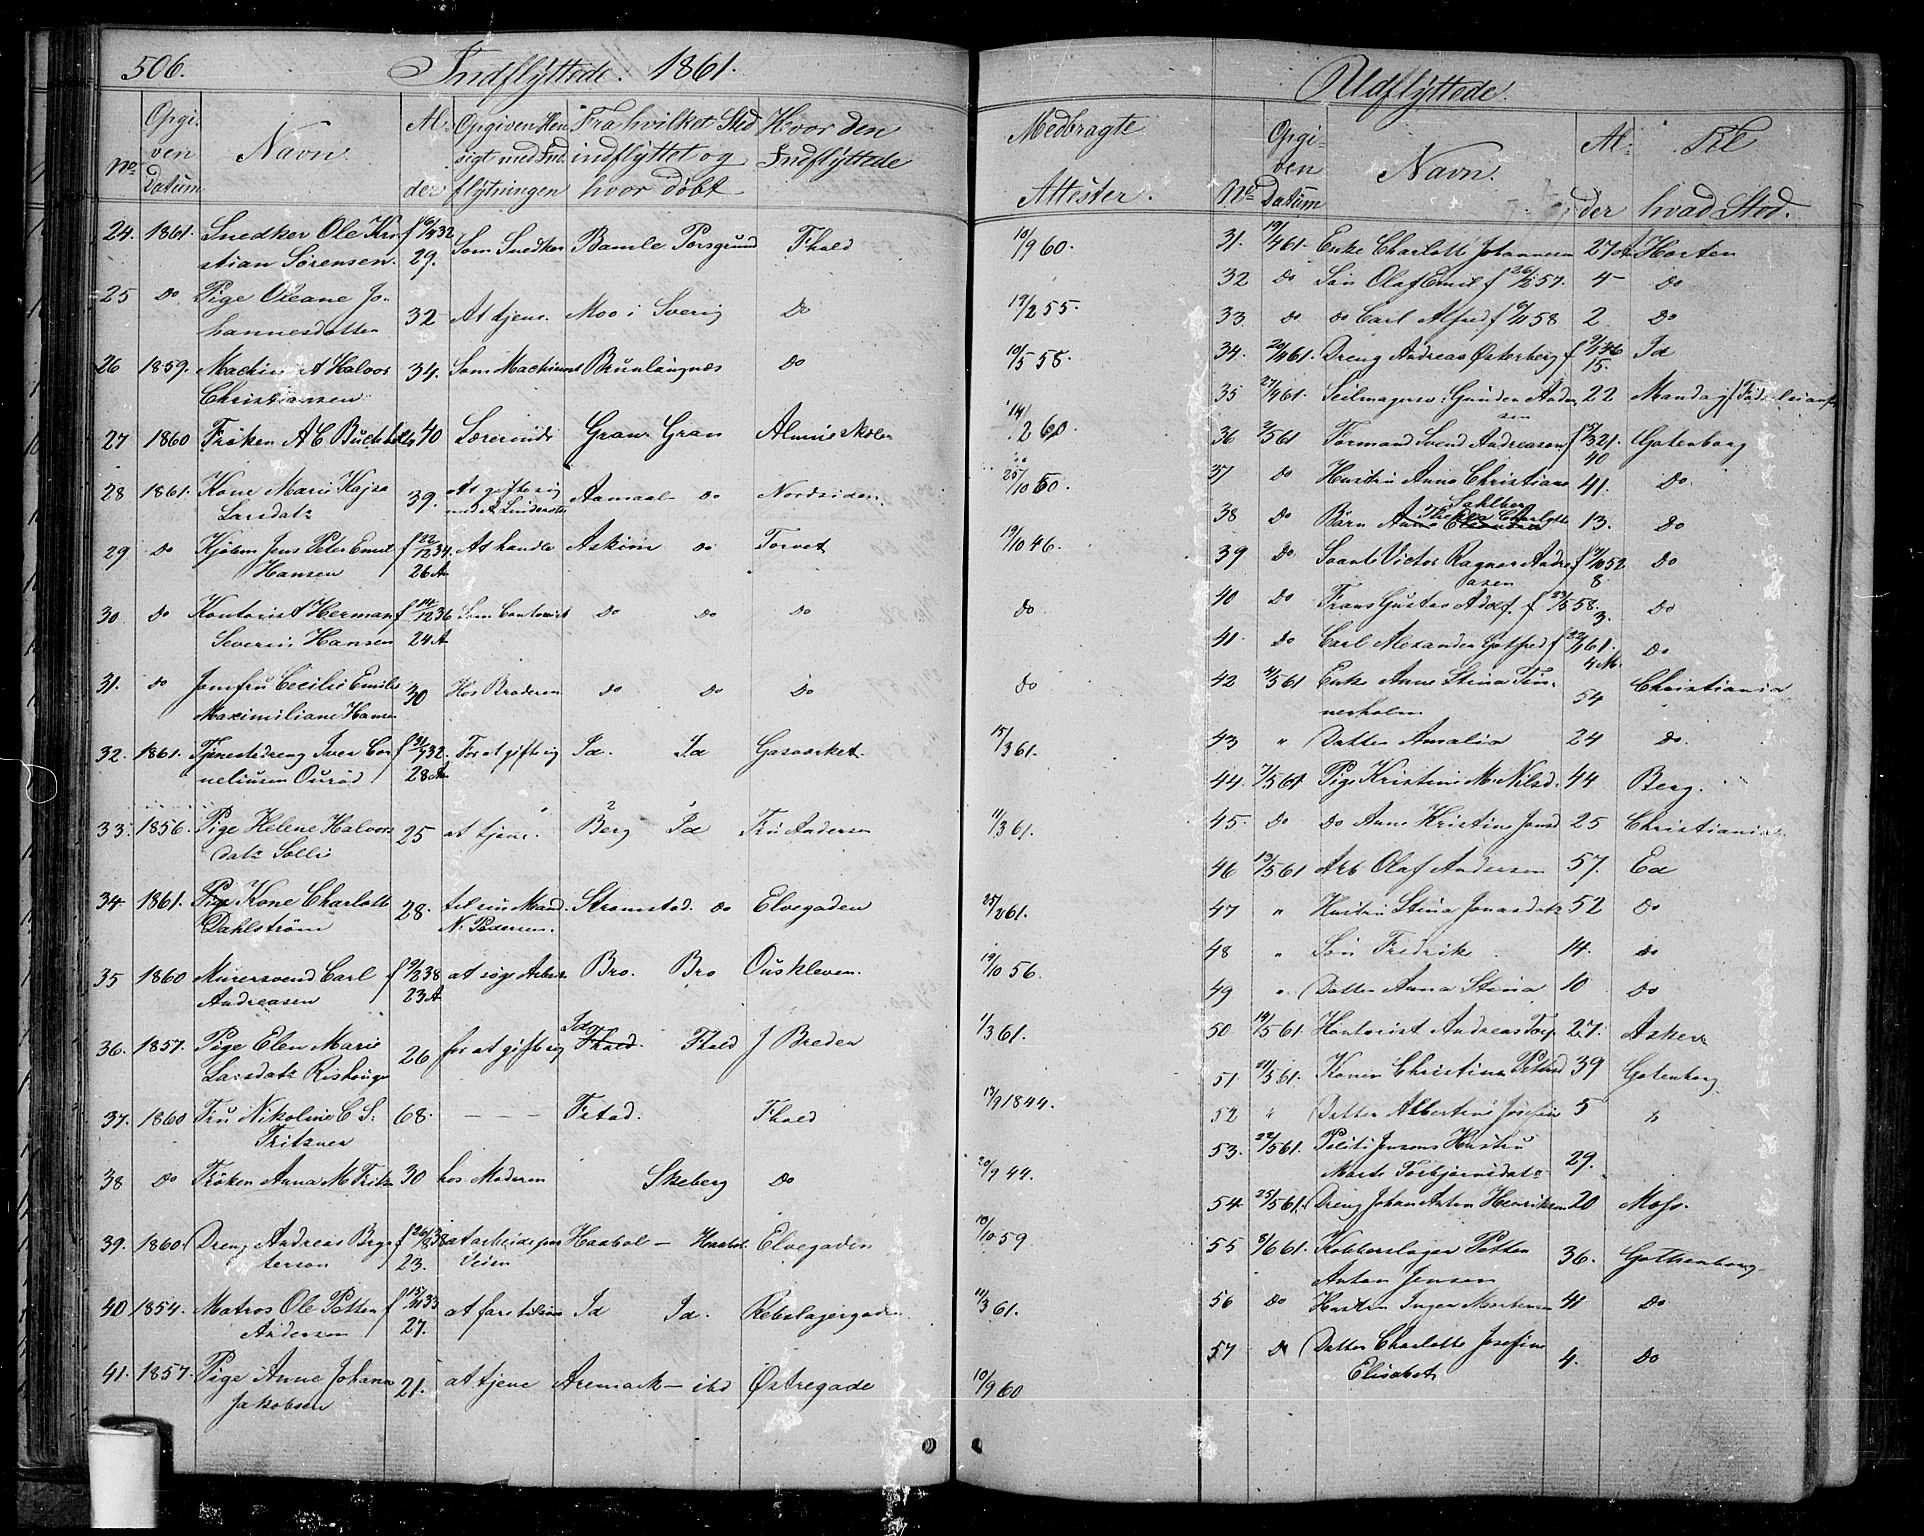 506. Indflyttede. 1861.
No Opgiven Datum Navn. Alder Opgiven Hensigt med Indflytningen Fra hvilket Sted indflyttet og hvor døbt Hvor den Indflyttede Medbragte Attester.
24. 1861. Snedker Ole Kri f 16/4 32 Som Snedker Bamle Porsgrund Fhald 10/9 60.
stian Sörensen. 29.
25 Do Pige Oleane Jo- 32 At tjene. Moo i Sverig Do 19/2 55.
hannesdatter
26 1859. Machinist Halvor 34. Som Machinist Brunlangnæs Do 10/5 58.
Christiansen
27 1860 Frøken A C Buchholz 40 Lærerinde Gran. Gran Almueskolen 14/2 60.
28 1861. Kone Marie Kajsa 39. At gifte sig Aamaal- do Nordsiden. 25/10 60.
Larsdatr med A. Linderoth
29 Do Kjøbm Jens Peter Ernst f 22/12 34. At handle Askim do Torvet 19/10 46.
Hansen 26 A
30 Do Kontorist Herman f 14/12 36 Som Contorist do do do Do.
Severin Hansen 24 A
31. Do Jomfru Cecilie Emilie 30 Hos Broderen do do Do Do
Maximiliane Hansen
32. 1861. Tjenestedreng Iver Cor f 31/7 32. For at gifte sig Id. Id Gasværket 15/3 61.
neliusen Ouröd 28 A
33. 1856. Pige Helene Halvors 25 at tjene. Berg Id Fru Andersen 11/3 61.
datr Sollie
34. 1861. Pige Kone Charlotte 28. til sin Mand Strømstad. do Elvegaden 25/2 61.
Dahlström N. Pedersen.
35 1860 Murersvend Carl f 9/2 38 at søge Arbeide Bro. Bro Ouskleven. 19/10 56.
Andreasen 23 A
36. 1857. Pige Elen Marie 26 for at gifte sig Id Fhald. Fhald J Breden 1/3 61.
Larsdatr Rishauge
37. 1860 Fru Nikoline C S. 68. – – – Fstad. Fhald 13/9 1844.
Fritzner
38 Do Frøken Anna M Fritzn 30 hos Moderen Skeberg Do 20/9 44.
39. 1860. Dreng Andreas Bryn f 26/8 38 at arbeide paa Haabøl – Haabøl. Elvegaden 10/10 59.
terson 23. Veien
40 1854. Matros Ole Petter f 15/11 33 at fare tilsøes Id Id. Rebslagergaden. 11/3 61.
Andersen 27.
41. 1857. Pige Anne Johanne 21. at tjene Aremark – ibd Østregade 10/9 60
Jakobsen
Udflyttede.
No Opgiven Datum Navn. Alder Til hvad Sted.
31. 19/4 61. Enke Charlotte Johannesen 27 A Horten
32 Do Søn Olaf Emil f 26/2 57. 4 Do
33 Do do Carl Alfred f 6/11 58 2 Do
34. 20/4 61. Dreng Andreas Østerberg f 9/1 46 Id
15.
35 27/4 61. Seilmagersv. Gunder Ander 22 Mandag
sen
36 2/5 61 Formand Svend Andreasen f 15/3 21. Gotenborg
40
37 Do Hustru Anne Christiane 41. Do
Sahlberg
38 Do Børn Anne Thekla Charlotte 13. Do
39 Do Svante Victor Ragnar Andre f 9/10 52 Do
asen 8
40 Do Frans Gustav Adolf. f 23/5 58. Do
3.
41. Do Carl Alexander Gotfred f 22/1 61. Do
4 M.
42 4/5 61 Enke Anne Stina Tin- 54 Christiania
nerholm
43 " Datter Amalia 24 do.
44. 7/5 61 Pige Kristine M. Nilsd. 44 Berg.
45. Do Do Anne Kristine Jonsd 25 Christiania.
46 13/5 61 Arb Olaf Andersen 57. Ed
47 " Hustru Stina Jonasdatr 52 Do
48 " Søn Fredrik 14. Do
49 " Datter Anna Stina 10 Do
50 14/5 61 Kontorist Andreas Torp 27. Asker
51 21/5 61. Konen Christina Pettersd 39 Gotenborg.
52 " Datter Albertine Josefin 5 "
53. 22/5 61. Politi Jensens Hustru 29.
Marte Torbjörnsdatr
54 25/5 61. Dreng Johan Anton Henriksen 20 Moss.
55 8/6 61. Kobberslager Petter 36. Gothenborg
Anton Jensen
56 Do Hustru Inger Mortensen 41 Do
57 Do Datter Charlotte Josefine 4. Do
Elisabet